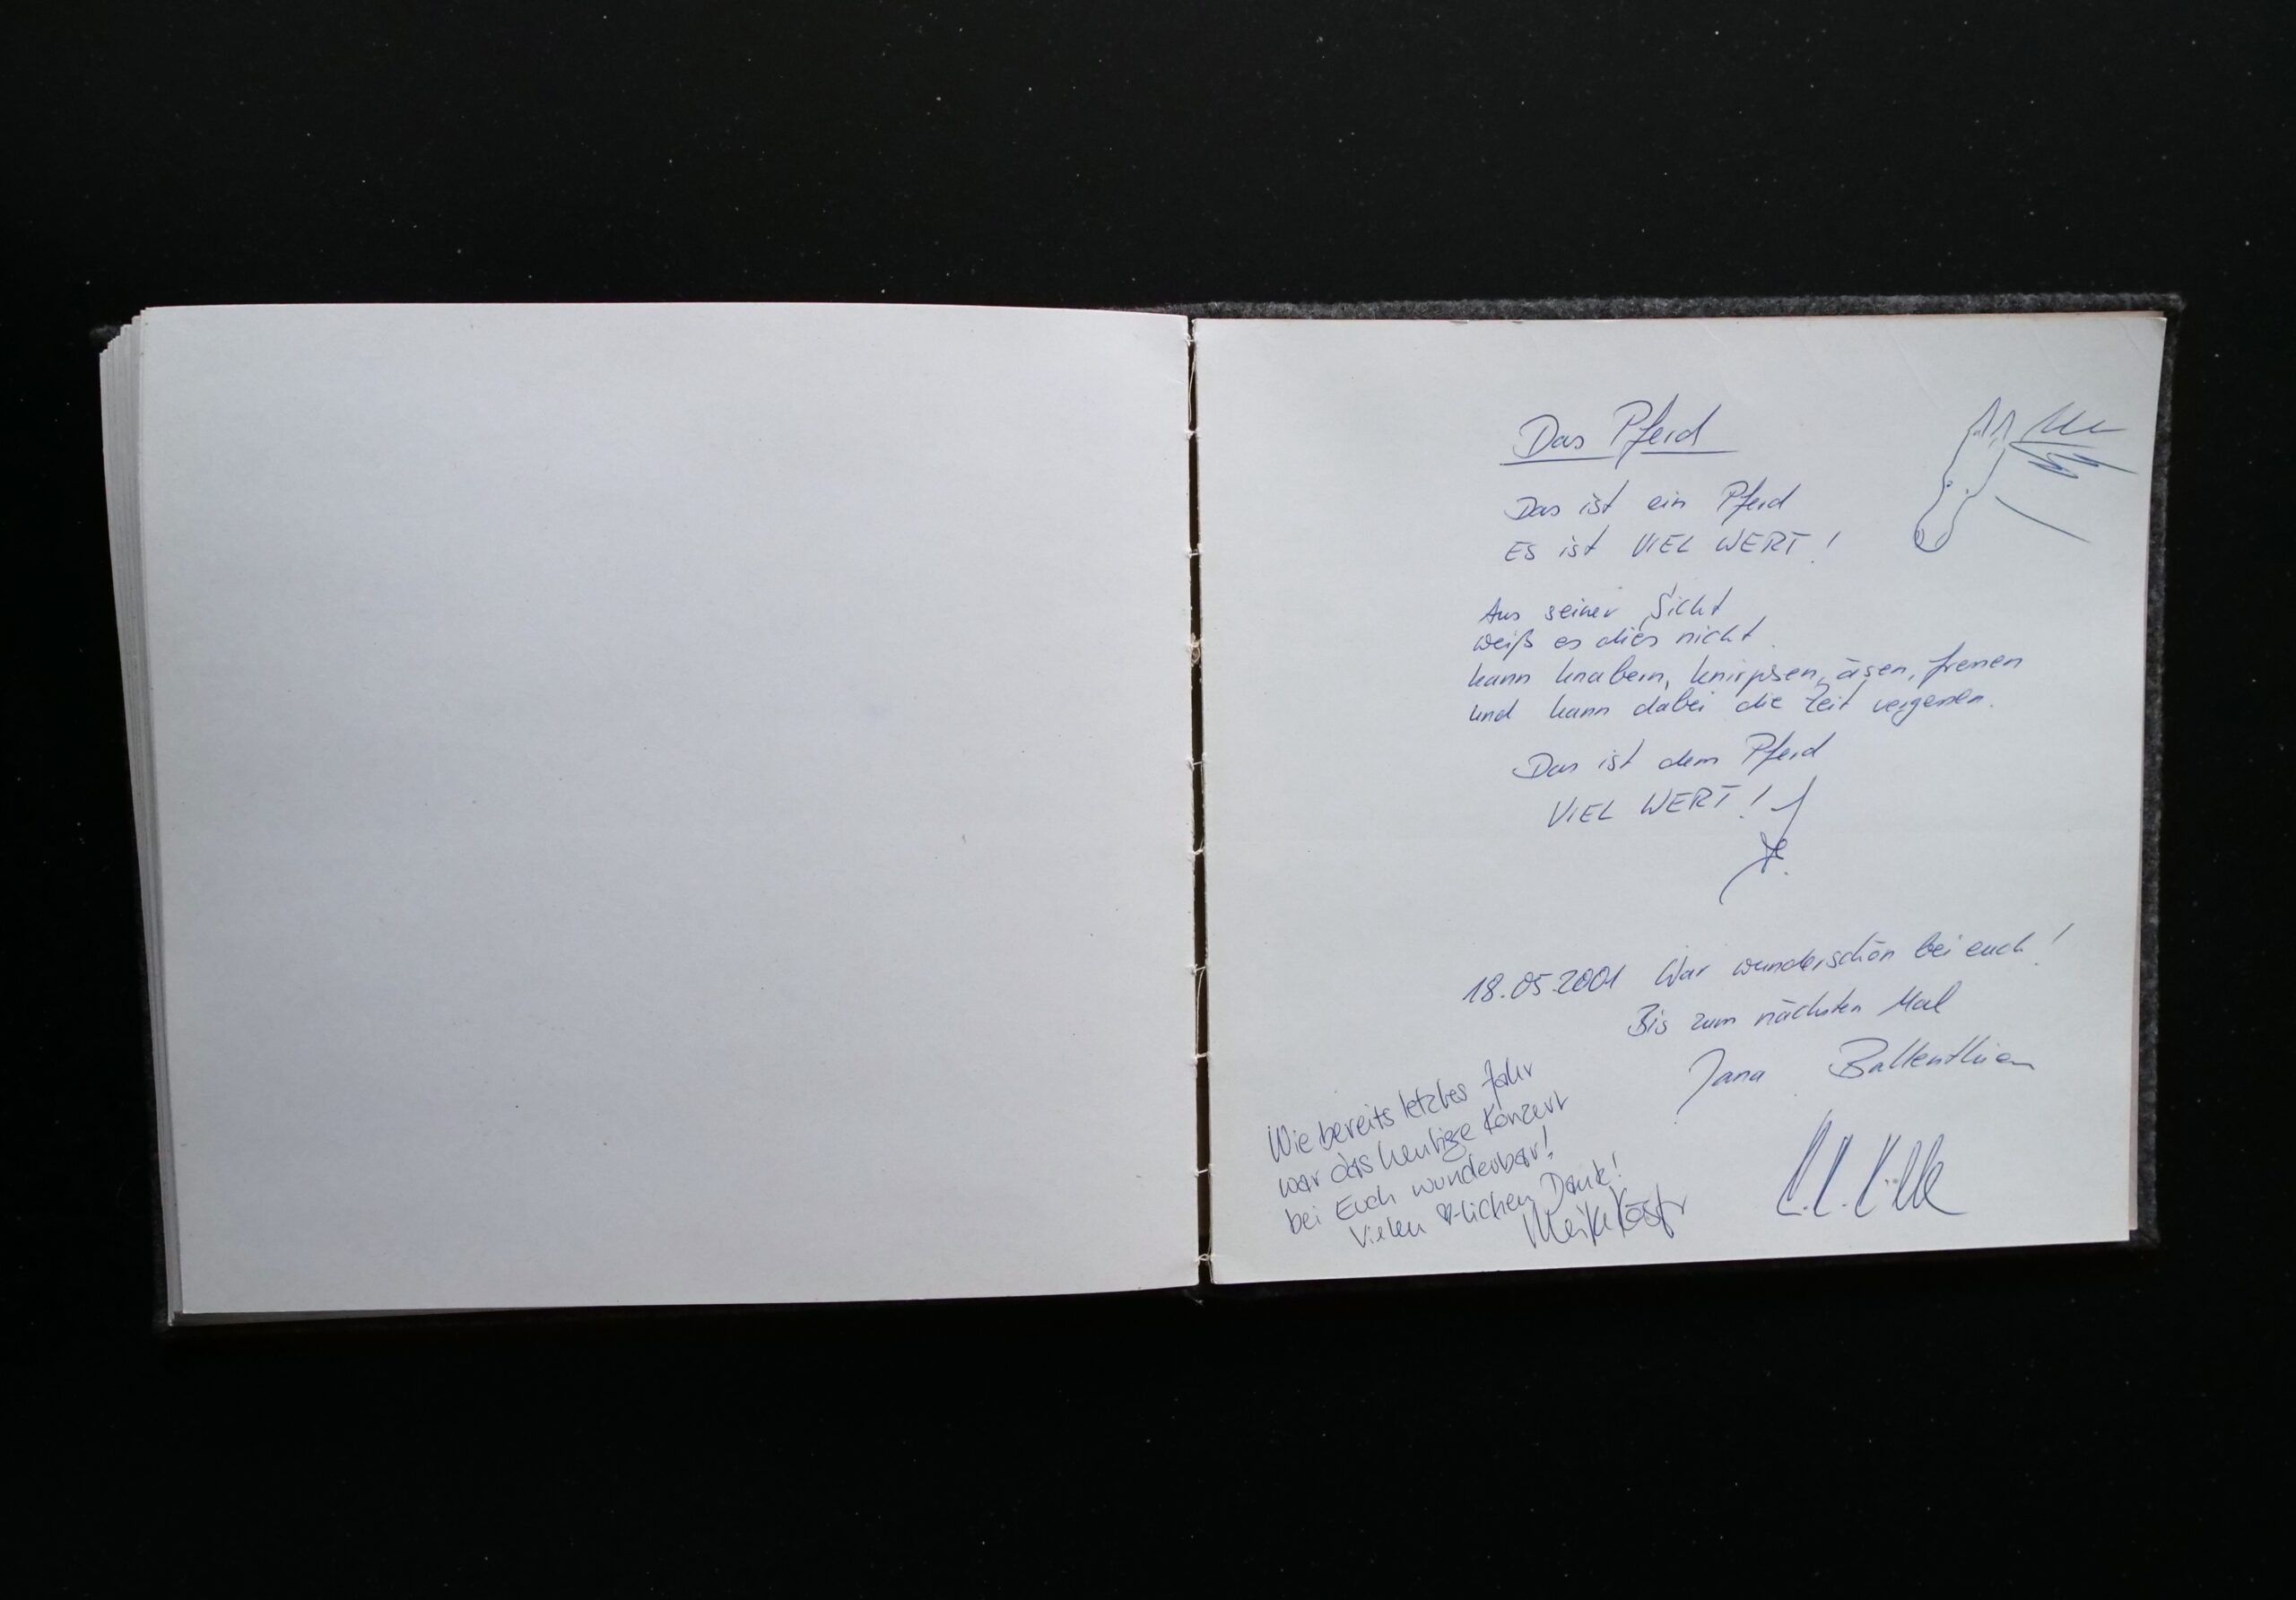 Das Pferd
Das ist ein Pferd
Es ist VIEL WERT!
Aus seiner Sicht
weiß es dies nicht.
kann knabern, knirpsen, äsen, fressen
und kann dabei die Zeit vergessen.
Das ist dem Pferd
VIEL WERT!
18.05.2001 War wunderschön bei euch!
Bis zum nächsten Mal
Jana Ballenthien
Wie bereits letztes Jahr
war das heutige Konzert
bei Euch wunderbar!
Vielen ♥-lichen Dank!